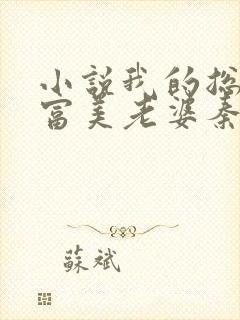 小说我的总
富美老婆秦
蘇斌